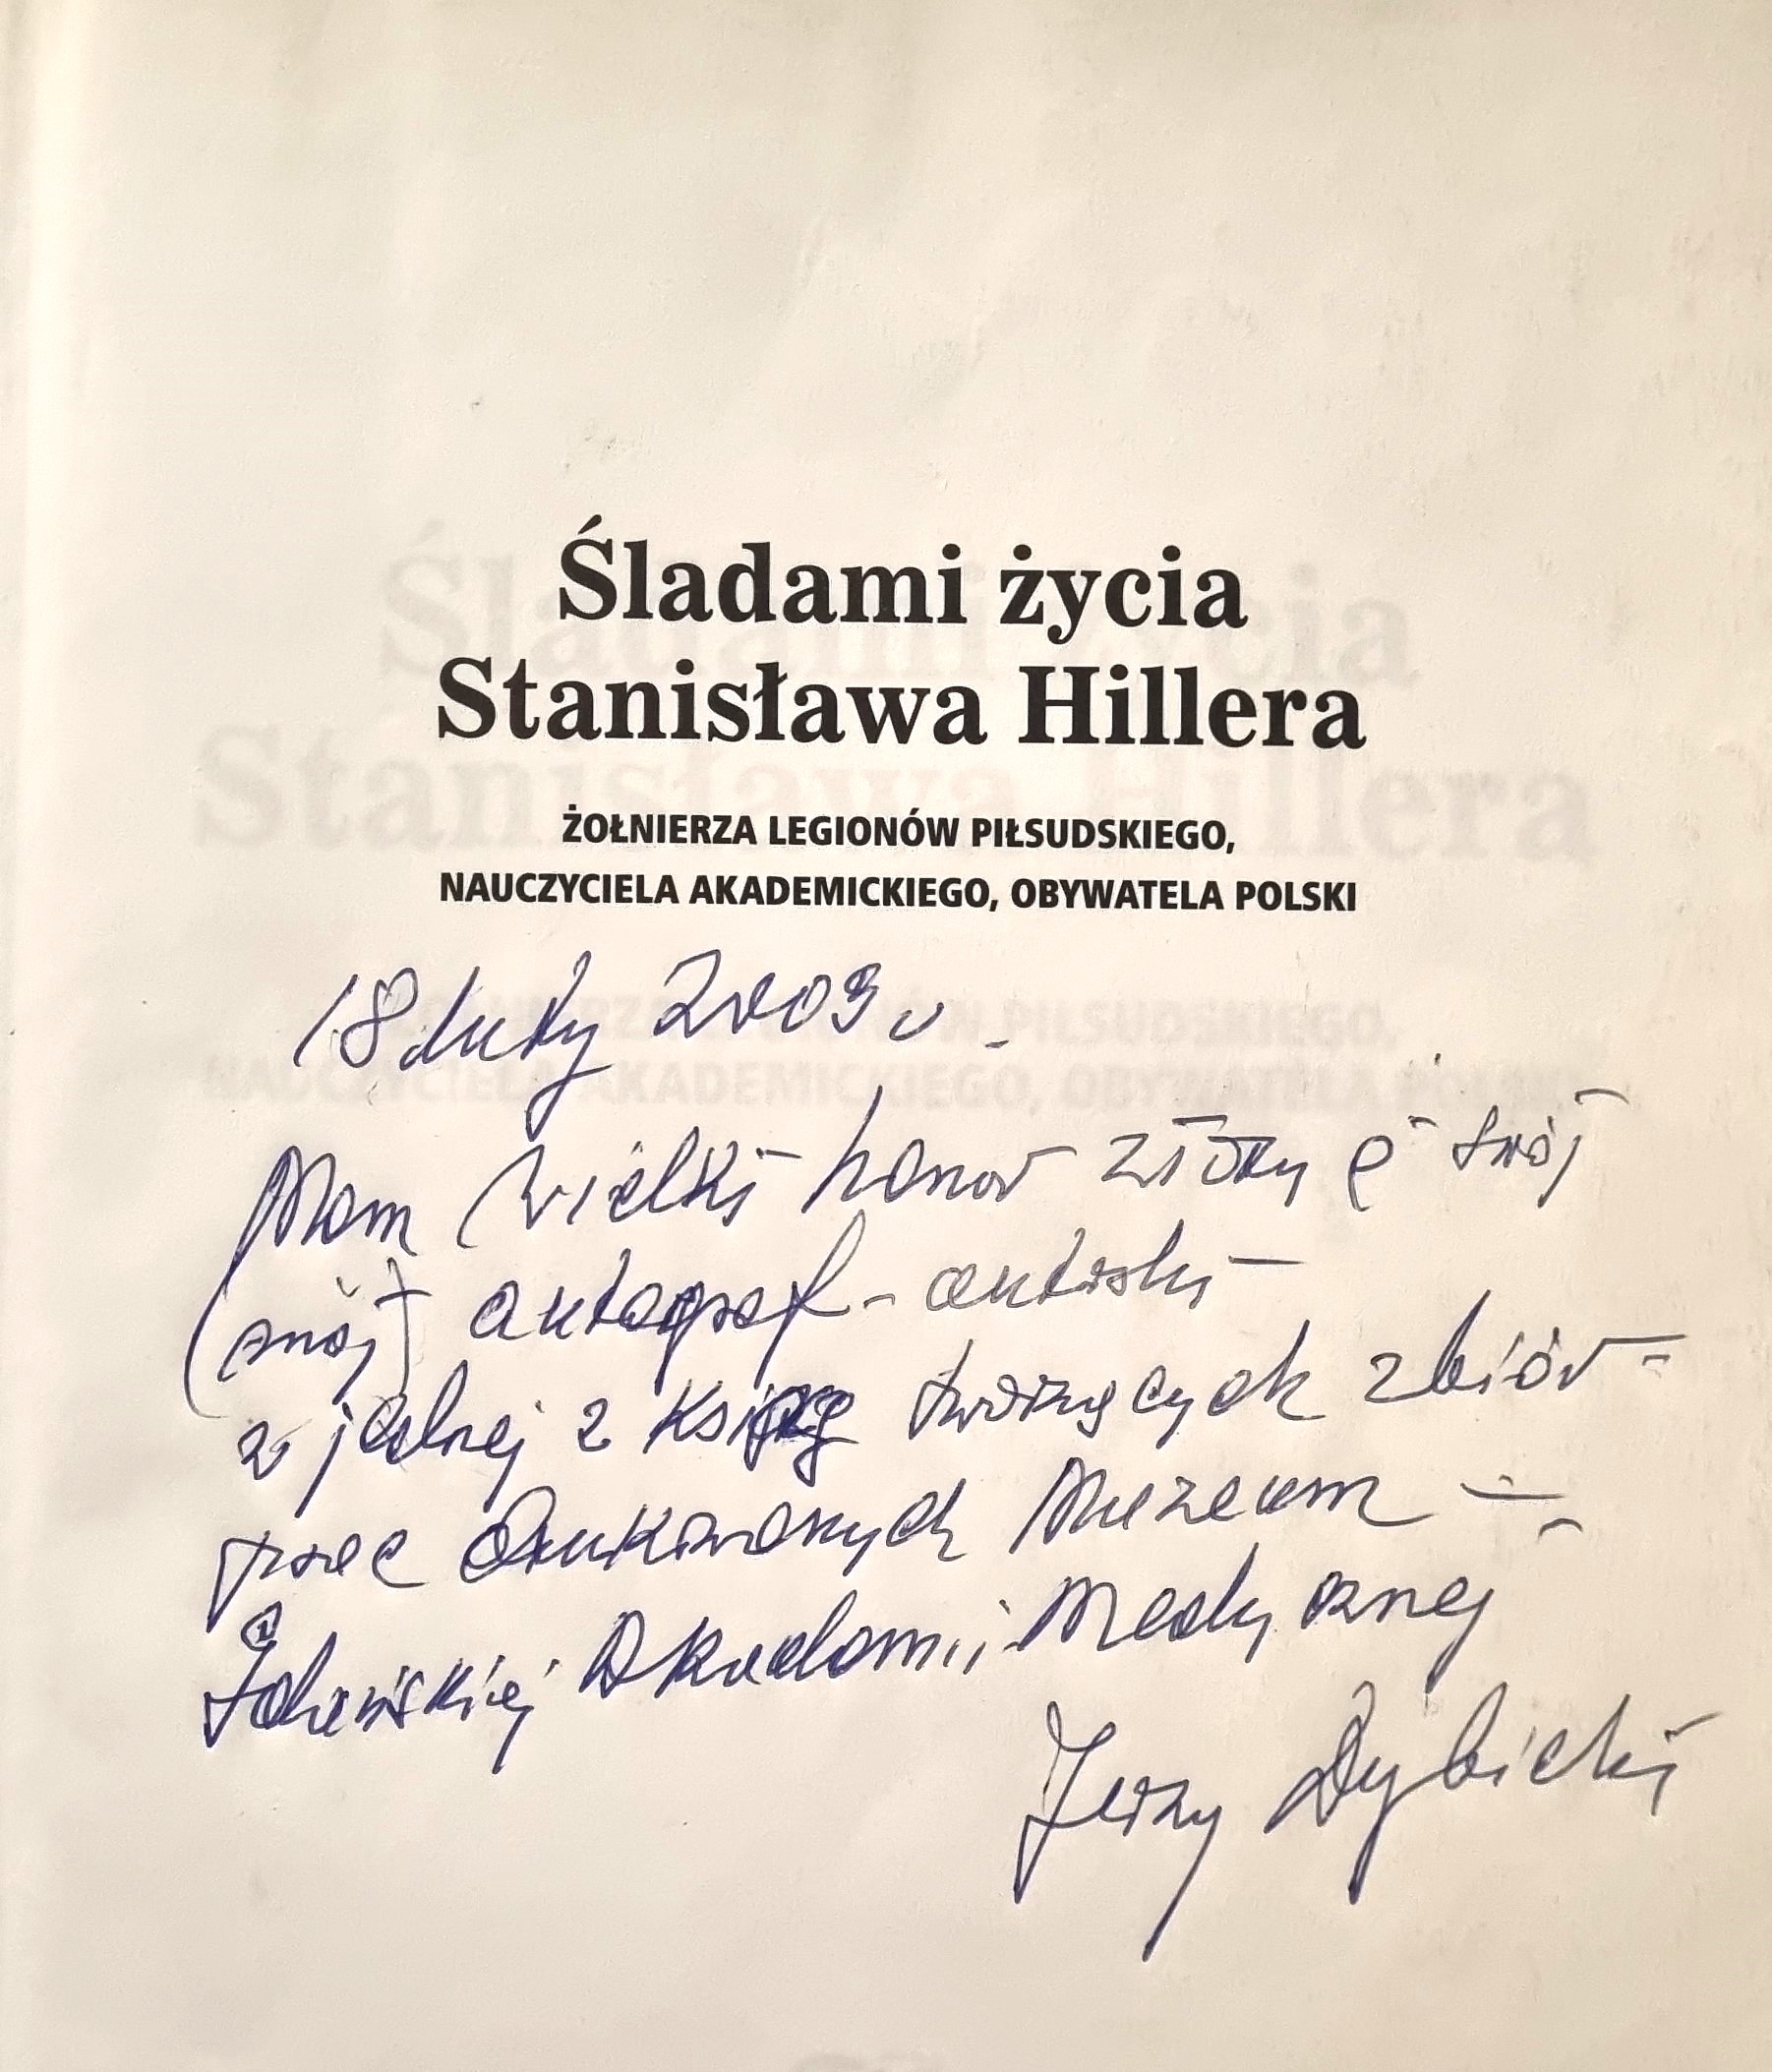 Śladami życia
Stanisława Hillera
ŻOŁNIERZA LEGIONÓW PIŁSUDSKIEGO,
NAUCZYCIELA AKADEMICKIEGO, OBYWATELA POLSKI
18 luty 2003 r.
Mam wielki honor złożyć swój
(mój) autograf - autorski
w jednej z ksiąg tworzących zbiór
prac drukowanych Muzeum
Gdańskiej Akademii Medycznej
Jerzy Dybicki